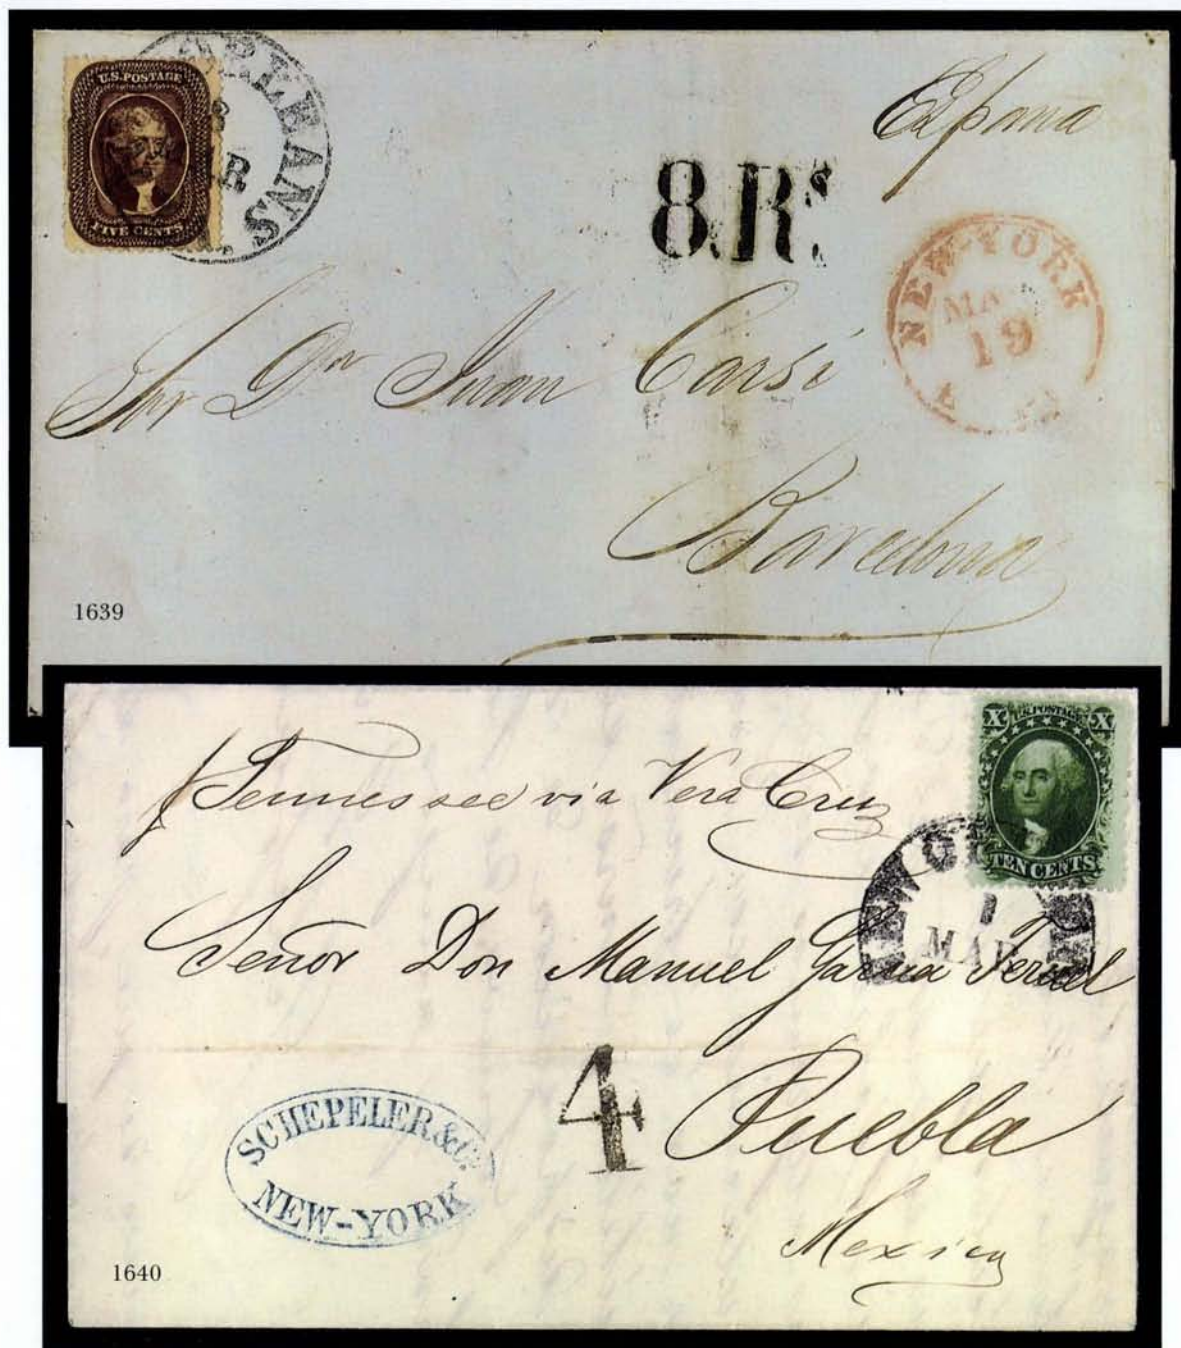 U.S. POSTAGE
FIVE CENTS
ORLEANS
R
España
8.Rs
NEW-YORK
MA
19
Snr Dn Juan Carsi
Barcelona
1639
X U.S. POSTAGE X
TEN CENTS
p Tennessee via Vera Cruz
1
MAR
Señor Don Manuel Garcia Teruel
4
Puebla
Mexico
SCHEPELER & Co.
NEW-YORK
1640